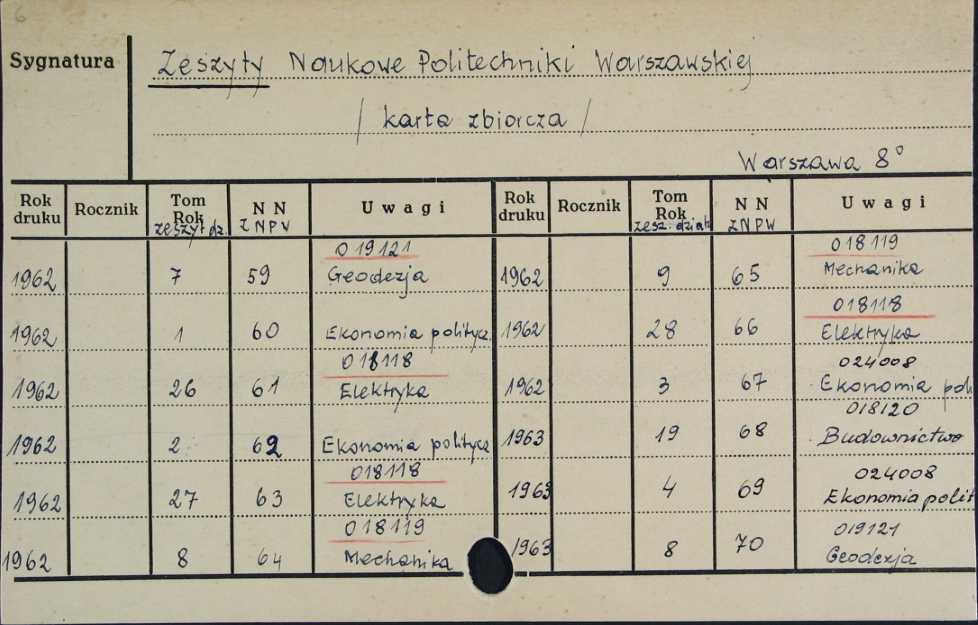 6
Sygnatura
Zeszyty Naukowe Politechniki Warszawskiej
/ karta zbiorcza /
Warszawa 8°
Rok druku Rocznik Tom Rok zeszyt dz. N N ZNPW Uwagi Rok druku Rocznik Tom Rok zesz. dział N N ZNPW Uwagi
019121 018119
1962 7 59 Geodezja 1962 9 65 Mechanika
018118
1962 1 60 Ekonomia politycz. 1962 28 66 Elektryka
018118 024008
1962 26 61 Elektryka 1962 3 67 Ekonomia pol
018120
1962 2 62 Ekonomia politycz 1963 19 68 Budownictwo
018118 024008
1962 27 63 Elektryka 1963 4 69 Ekonomia polit
018119 019121
1962 8 64 Mechanika 1963 8 70 Geodezja